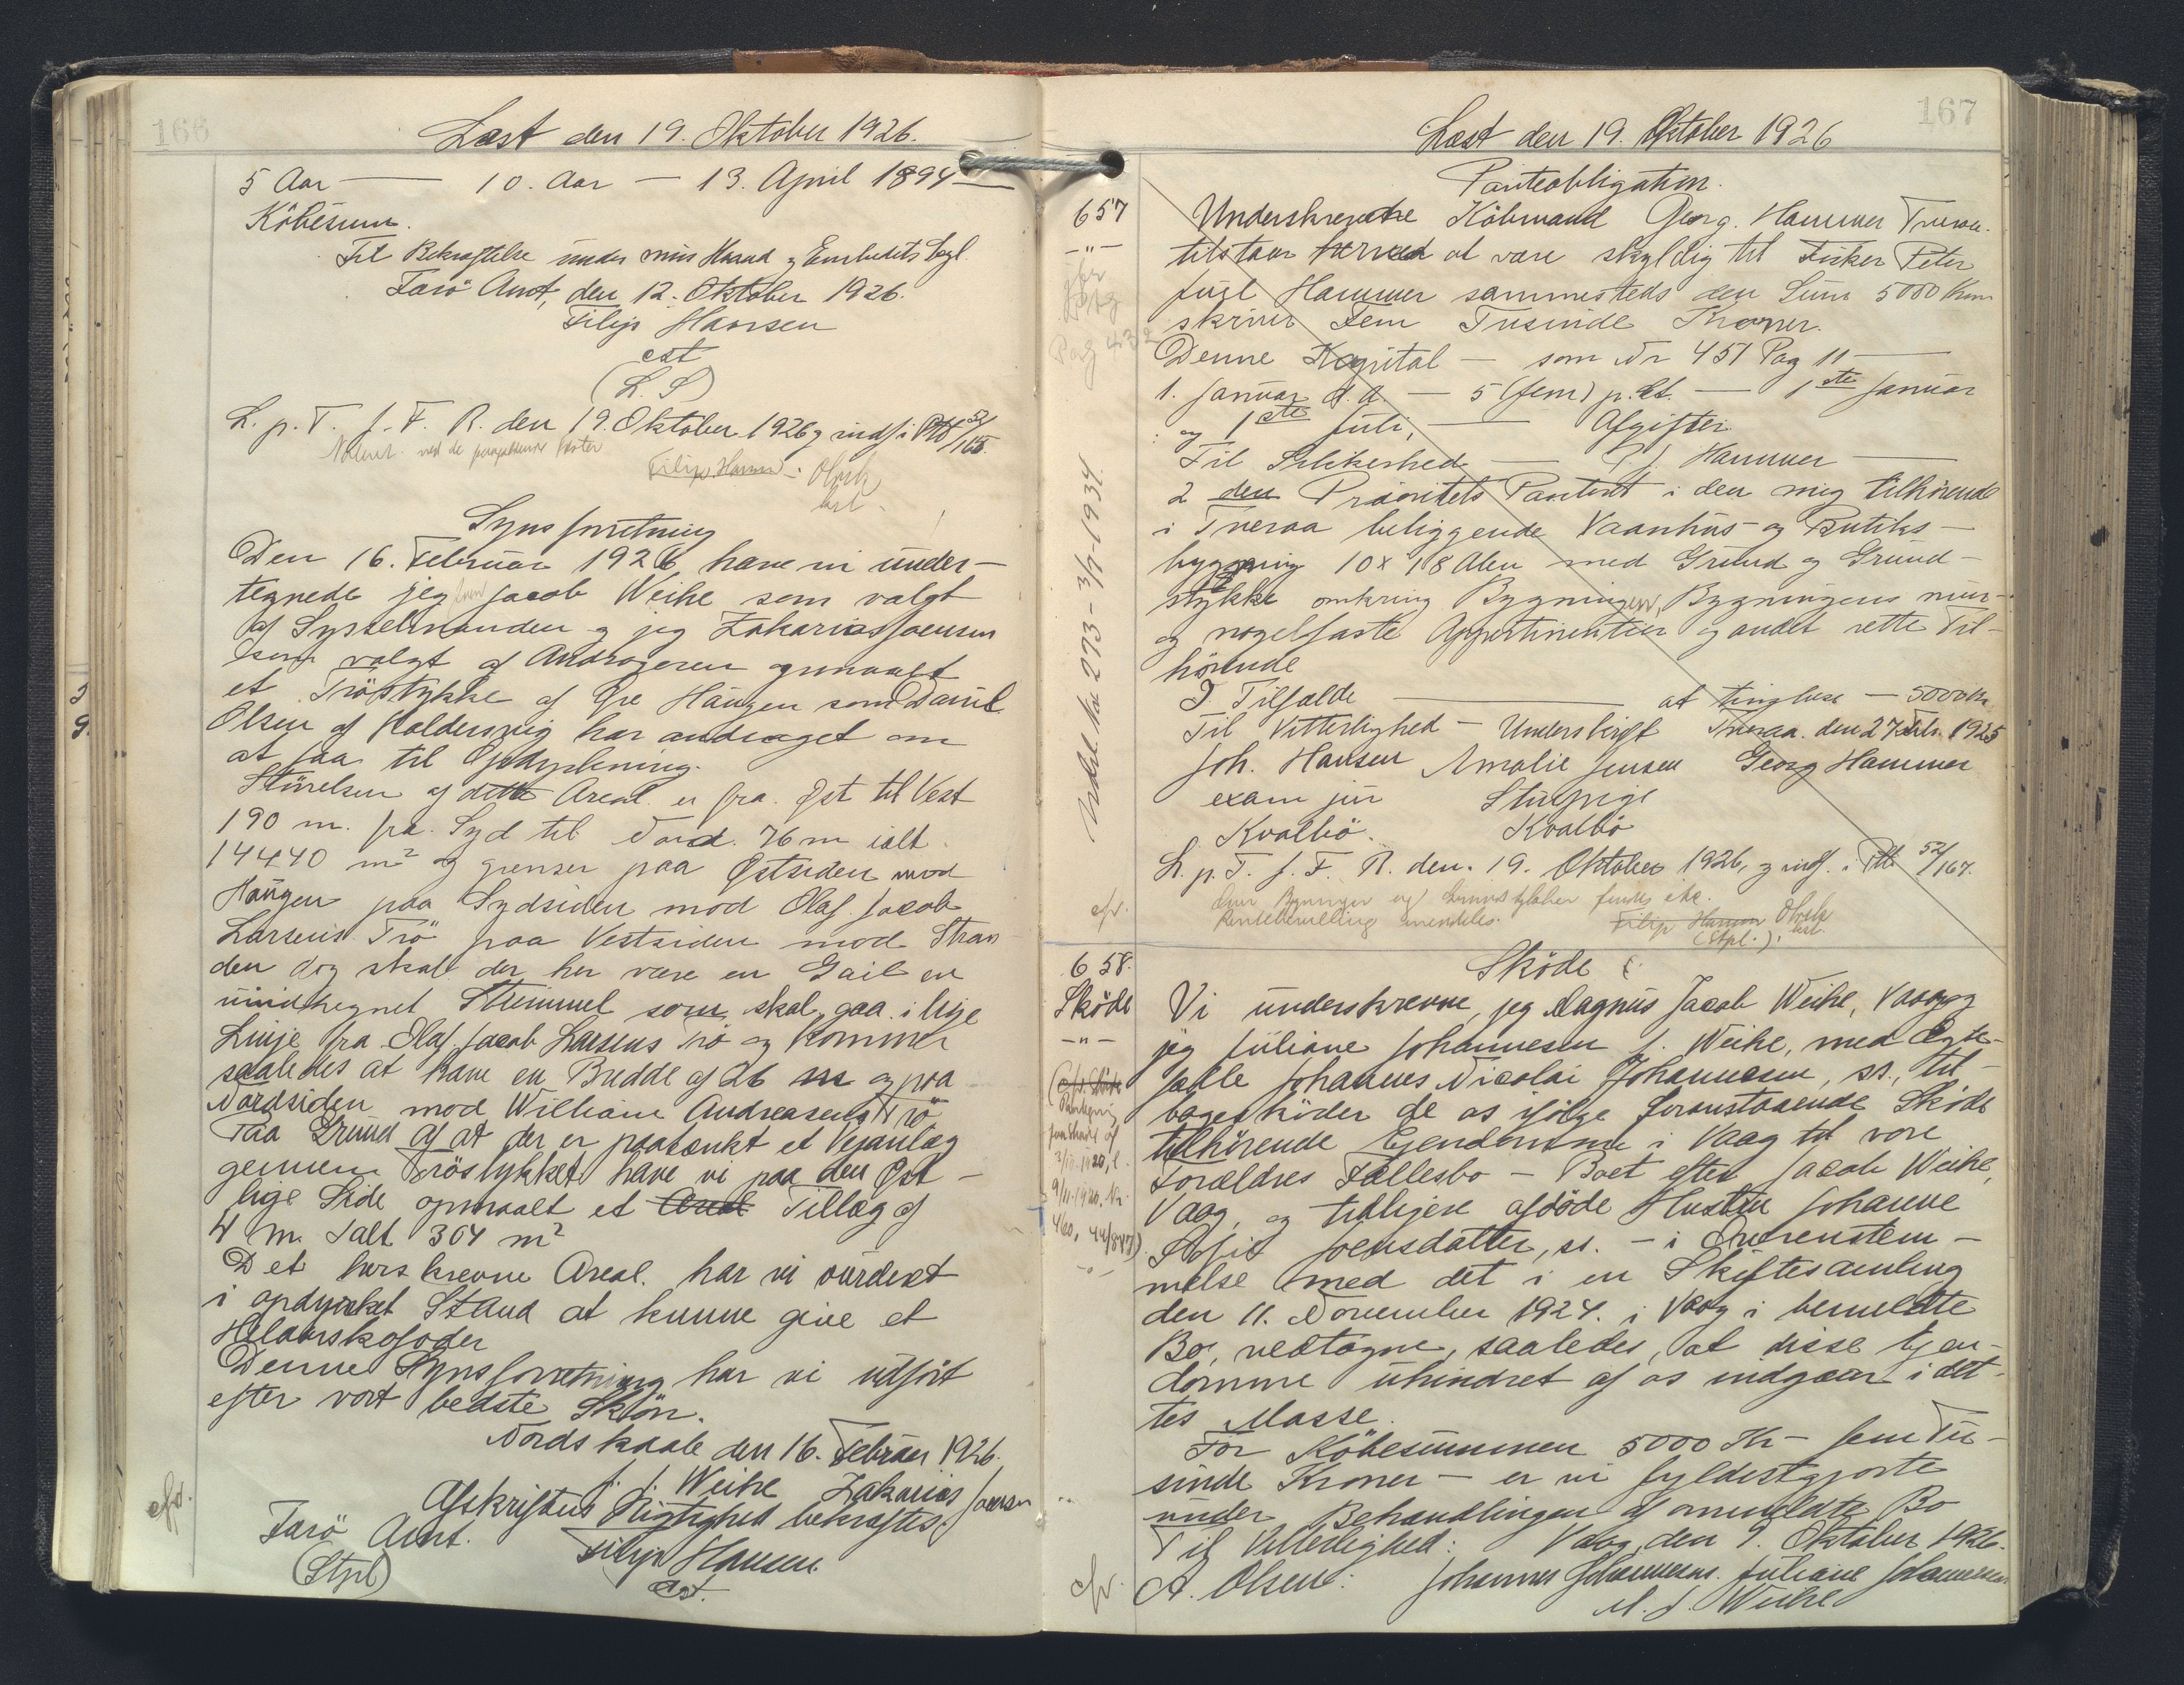 166
Læst den 19. Oktober 1926.
5 Aar — 10. Aar — 13. April 1894 —
Köbesum.
Til Bekræftelse under min Haand og Embedets Segl.
Færö Amt, den 12. Oktober 1926.
Filip Hansen
cst
(L. S)
L. p. T. f. F. R. den 19. Oktober 1926 og indf i Ptb 52/165.
ved de
Filip Hansen.
cst.
Synsforretning
Den 16. Februar 1926 have vi under-
tegnede jeg Jacob Weihe som valgt
af Sysselmanden og jeg Zakarias Joensen
som valgt af Andrageren opmaalt
et Tröstykke af Gre Haugen som Daniel
Olsen af Haldersvig har andraget om
at faa til Opdyrkning.
Störelsen af dette Areal er fra Øst til Vest
190 m. fra Syd til Nord. 76 m ialt
14440 m² og grenser paa Østsiden mod
Haugen paa Sydsiden mod Olaf Jacob
Larsens Trö paa Vestsiden mod Stran
den dog skal der her være en Gail en
uindhegnet Strimmel som skal gaa i lige
Linje fra Olaf Jacob Larsens Trö og kommer
saaledes at have en Bredde af 26 m og paa
Nordsiden mod William Andreasens Trö
Paa Grund af at der er paatænkt et Vejanlæg
gennem Tröstykket have vi paa den Øst-
lige Side opmaalt et Areal Tillæg af
4 m. Ialt 304 m²
Det herskrevne Areal. har vi vurderet
i opdyrket Stand at kunne give et
Helaarskofoder
Denne Synsforretning har vi udfört
efter vort bedste Skön.
Nordskaale den 16. Februar 1926.
J. J. Weihe Zakarias Joensen
Afskriftens Rigtighed bekræftes.
Færö Amt. Filip Hansen
(Stpl) cst.
cfr.
167
Læst den 19. Oktober 1926
Panteobligation.
657
Underskrevne Köbmand Georg. Hammer Tveraa.
tilstaar herved at være skyldig til Fisker Peter
Fugl Hammer sammesteds den Sum 5000 Kron
skriver Fem Tusinde Kroner.
Denne Kapital — som Nr 451 Pag 11 —
1. Januar d. A. — 5 (fem) p.Ct. — 1ste Januar
og 1ste Juli, — Afgifter
Til Sikkerhed — P. J. Hammer —
2 den Prioritets Panteret i den mig tilhörende
i Tveraa beliggende Vaanhus- og Butiks-
bygning 10 x 18 Alen med Grund og Grund-
stykke omkring Bygningen, Bygningens mur-
og nagelfaste Appertinentier og andet rette Til-
hörende
I Tilfælde — at tinglæse — 5000 Kr
Til Vitterlighed — Underskrift Tveraa. den 27 Feb. 1925
Joh. Hansen Amalie Jensen Georg Hammer
exam jur Stuepige
Kvalbö. Kvalbö
L. p. T. f. F. R. den. 19. Oktober 1926, og indf. i Ptb. 52/167.
Filip Hansen
(Stpl.). cst.
cfr.
658.
Sköde
Sköde
Vi underskrevne, jeg Magnus Jacob Weihe, Vaag og
jeg Juliane Johannesen f. Weihe, med Ægte-
fælle Johannes Nicolai Johannesen, ss., til-
bageskøder de os ifölge foranstaaende Sköde
tilhörende Ejendomme i Vaag til vore
Forældres Fællesbo — Boet efter Jacob Weihe,
Vaag, og tidligere afdöde Hustru Johanne
Sofie Joensdatter, ss. — i Overenstem-
melse med det i en Skiftesamling
den 11. November 1924. i Vaag i bemeldte
Bo, vedtagne, saaledes, at disse Ejen-
domme uhindret af os indgaar i det-
tes Masse.
For Köbesummen 5000 Kr — fem Tu-
sinde Kroner — er vi fyldestgjorte
under Behandlingen af ommeldte Bo
Til Vitterlighed: Vaag, den 9. Oktober 1926.
A. Olsen. Johannes Johannesen. Juliane Johannesen
M. J. Weihe
cfr.